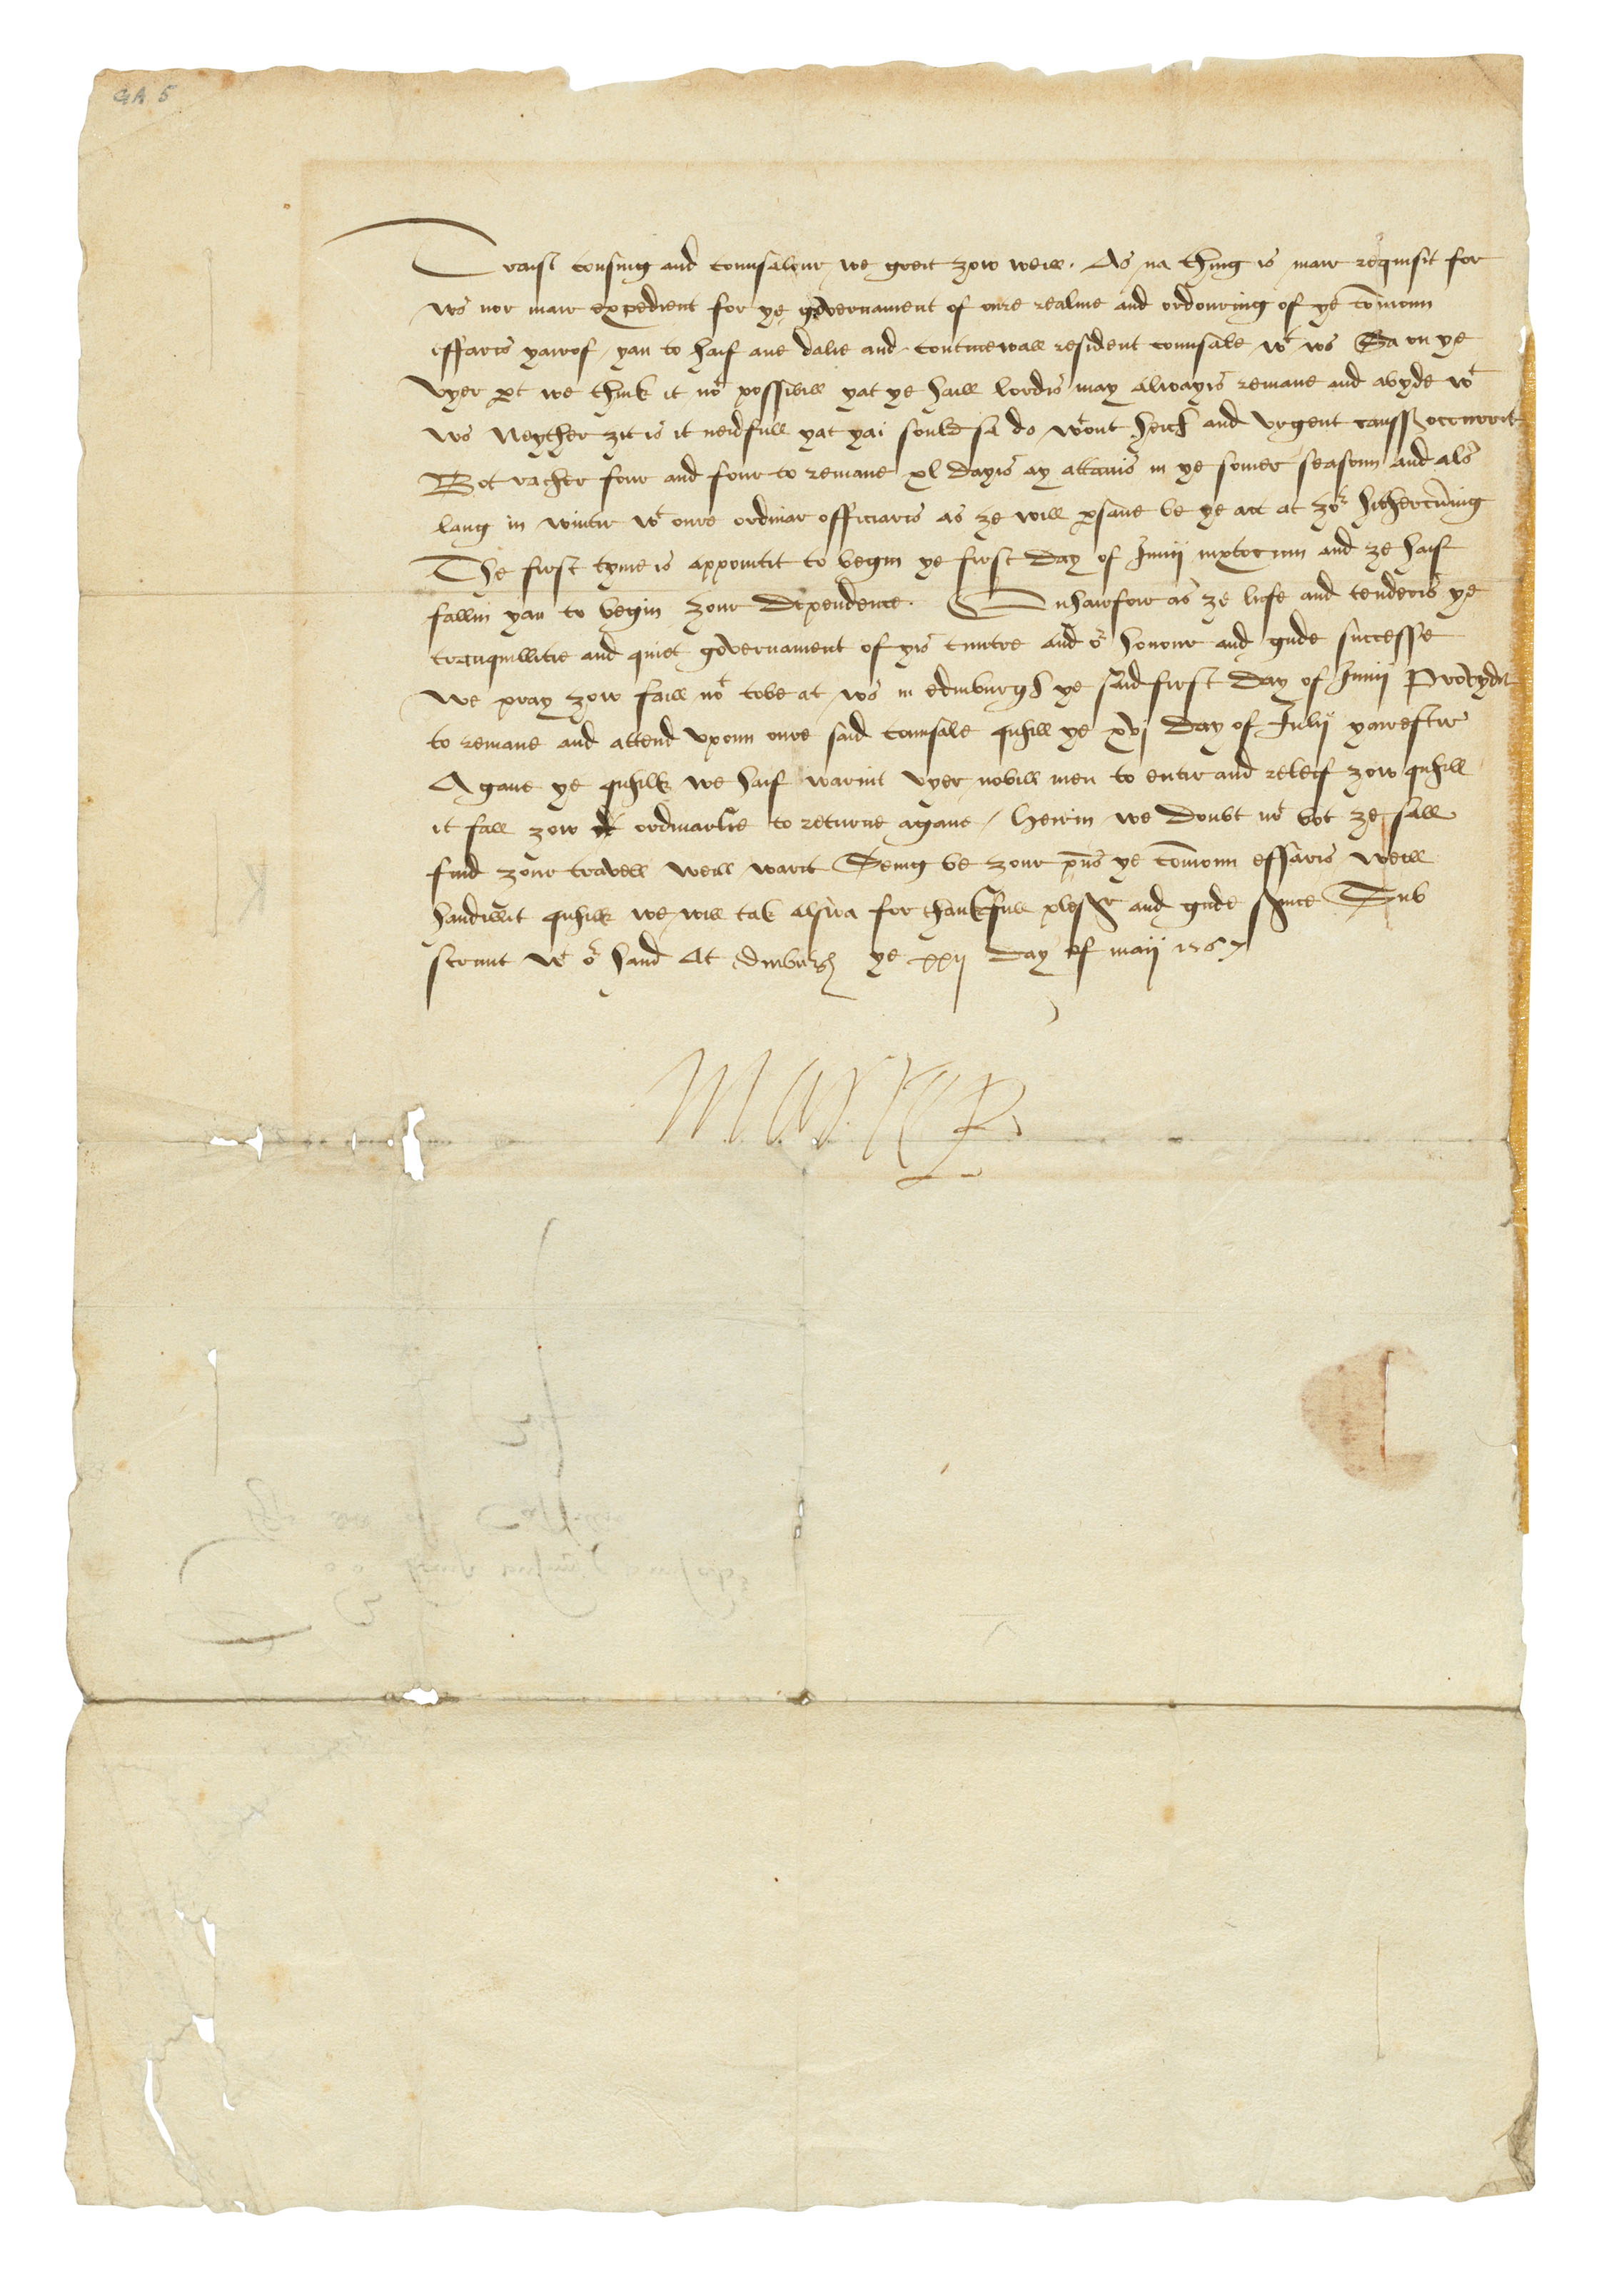 GA 5
Traist cousing and counsalour we greit zow weill. As na thing is mair requisit for
ws nor mair expedient for ye governament of oure realme and ordouring of ye comoun
effaris yairof, yan to haif ane dalie and continewall resident counsale wt ws Sa on ye
vyer pt we think it not possibill yat ye haill lordis may alwayis remane and abyde wt
ws Neyther zit is it neidfull yat yai sould sa do wtout heich and vrgent causs occurrit
Bot racher four and four to remane xl dayis ay attanis in ye somer seasoun and als
lang in wintir wt oure ordinar officiaris as ze will psave be ye act at zor hithercuming
The first tyme is appointit to begin ye first day of Junij nixtocum and ze haif
fallin yan to begin zour dependence. Quhairfoir as ze lufe and tenderis ye
tranquillitie and quiet governament of yis cuntre and or honour and gude successe
we pray zow faill not tobe at ws in edinburgh ye said first day of Junij Prowydit
to remane and attend vpoun oure said counsale quhill ye xvj day of Julij yairefter
Agane ye quhilk we haif warnit vyer nobill men to entir and releif zow quhill
it fall zow ordinarlie to returne agane / Heirin we doubt not bot ze sall
find zour travell weill warit Seing be zour pns ye comoun effaris weill
handillit quhilk we will tak alswa for thankfull plesr and gude suice Sub
scriuit wt or hand At Edinburgh ye xxij day of maij 1567
Marie R